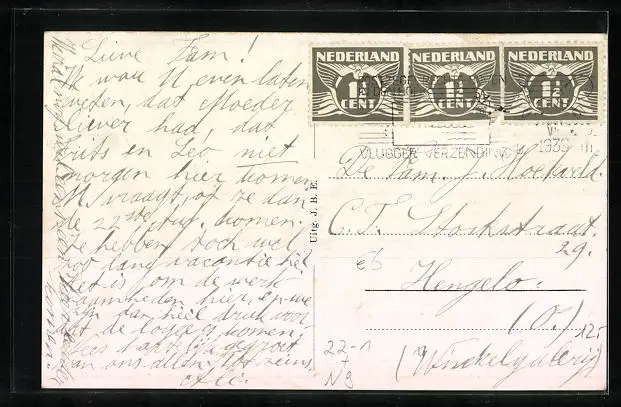 Lieve Fam!
Ik wou U even laten
weten, dat Moeder
liever had, dat
en Leo niet
morgen hier komen
M. vraagt, of ze dan
de 22ste Aug. komen.
Ze hebben toch wel
zoo lang vacantie hè?
Het is om de werk-
zaamheden hier, en we
zijn dan heel druk voor
dat de logé's komen.
Dus hartelijk gegroet
van ons allen, tot ziens.
NEDERLAND NEDERLAND NEDERLAND
1½ CENT 1½ CENT 1½ CENT
VLUGGER VERZENDING
1939
Uitg. J. B. E.
De Fam. J.
C.T. Storkstraat.
29.
Hengelo.
(O.)
(Winkelgalerij)
12.-
22-1
N9